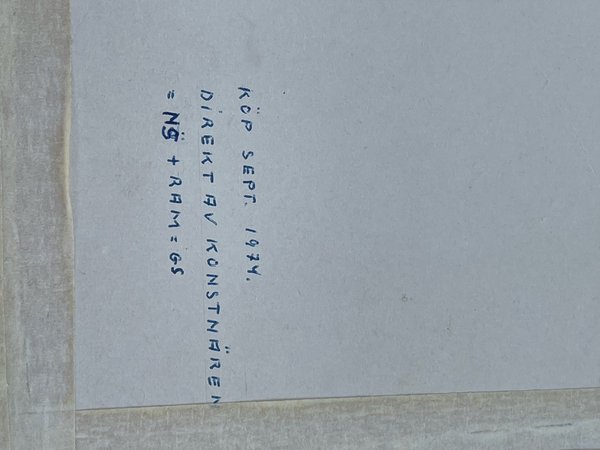 KÖP SEPT. 1974.
DIREKT AV KONSTNÄREN
= + RAM = GS